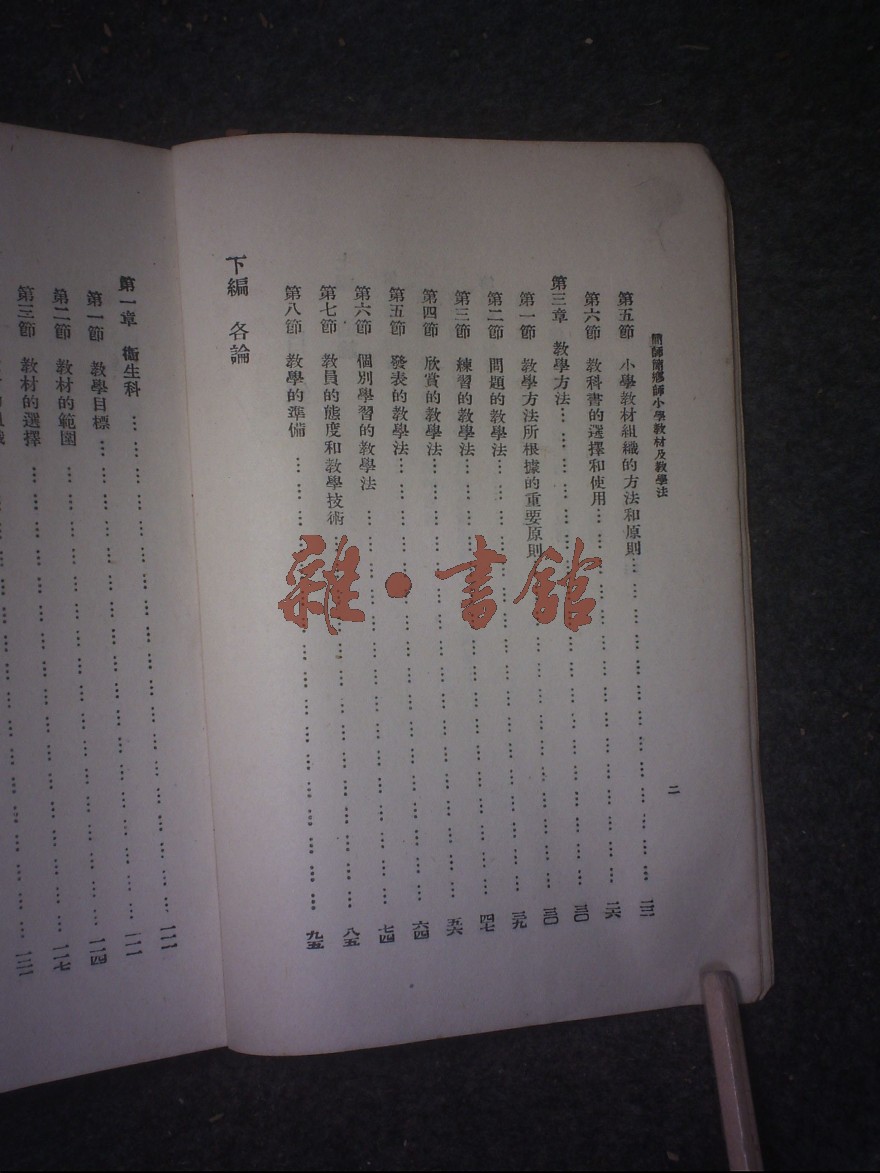 簡師簡鄉師小學教材及教學法
二
第五節 小學教材組織的方法和原則……二二
第六節 教科書的選擇和使用……二六
第三章 教學方法……三〇
第一節 教學方法所根據的重要原則……三〇
第二節 問題的教學法……三九
第三節 練習的教學法……四七
第四節 欣賞的教學法……五六
第五節 發表的教學法……六四
第六節 個別學習的教學法……七四
第七節 教員的態度和教學技術……八五
第八節 教學的準備……九五
下編 各論
第一章 衞生科……一一一
第一節 教學目標……一一一
第二節 教材的範圍……一一四
第三節 教材的選擇……一一七
雜·書館